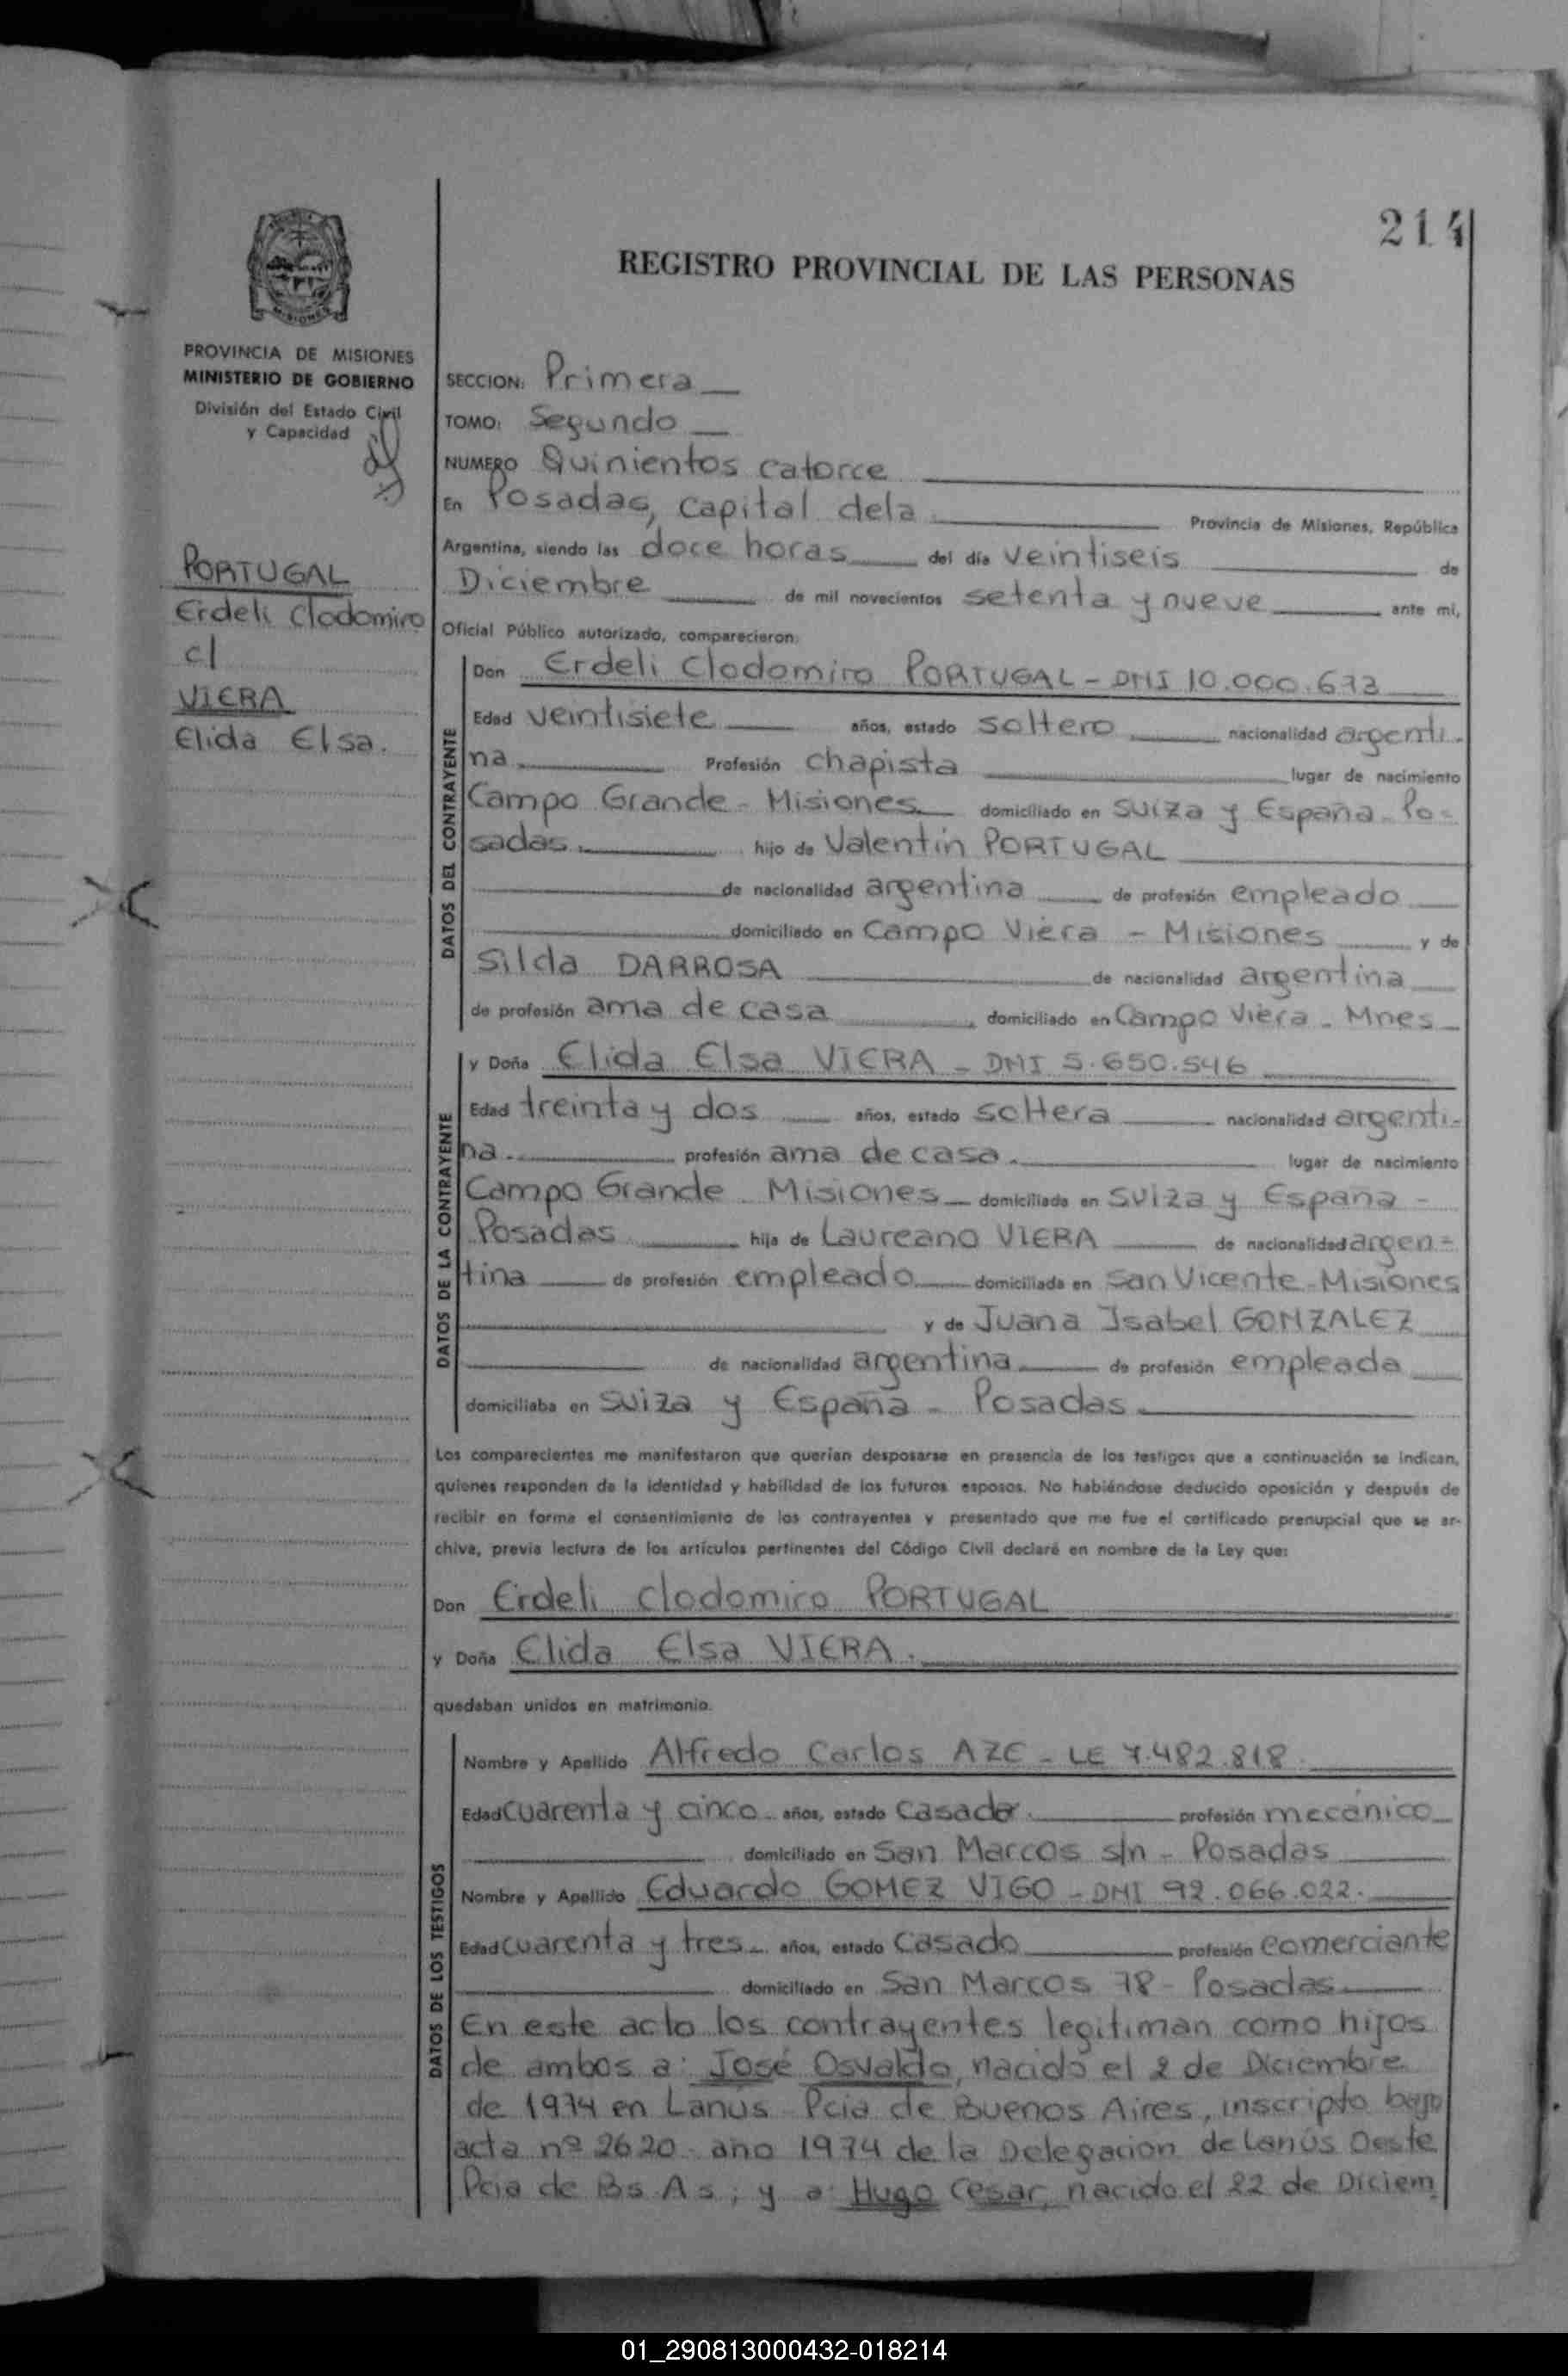 214
REGISTRO PROVINCIAL DE LAS PERSONAS
MISIONES
PROVINCIA DE MISIONES
MINISTERIO DE GOBIERNO
División del Estado Civil
y Capacidad
PORTUGAL
Erdeli Clodomiro
c/
VIERA
Elida Elsa.
SECCION: Primera
TOMO: Segundo
NUMERO Quinientos catorce
En Posadas, capital dela Provincia de Misiones, República
Argentina, siendo las doce horas del día veintiseis de
Diciembre de mil novecientos setenta y nueve ante mí,
Oficial Público autorizado, comparecieron:
DATOS DEL CONTRAYENTE
Don Erdeli Clodomiro PORTUGAL - DNI 10.000.673
Edad veintisiete años, estado soltero nacionalidad argenti-
na. Profesión chapista lugar de nacimiento
Campo Grande - Misiones domiciliado en Suiza y España - Po-
sadas. hijo de Valentín PORTUGAL
de nacionalidad argentina de profesión empleado
domiciliado en Campo Viera - Misiones y de
Silda DARROSA de nacionalidad argentina
de profesión ama de casa domiciliado en Campo Viera - Mnes
DATOS DE LA CONTRAYENTE
y Doña Elida Elsa VIERA - DNI 5.650.546
Edad treinta y dos años, estado soltera nacionalidad argenti-
na. profesión ama de casa. lugar de nacimiento
Campo Grande - Misiones domiciliada en Suiza y España -
Posadas hija de Laureano VIERA de nacionalidad argen-
tina de profesión empleado domiciliada en San Vicente - Misiones
y de Juana Isabel GONZALEZ
de nacionalidad argentina de profesión empleada
domiciliaba en Suiza y España - Posadas.
Los comparecientes me manifestaron que querían desposarse en presencia de los testigos que a continuación se indican,
quienes responden de la identidad y habilidad de los futuros esposos. No habiéndose deducido oposición y después de
recibir en forma el consentimiento de los contrayentes y presentado que me fue el certificado prenupcial que se ar-
chiva, previa lectura de los artículos pertinentes del Código Civil declaré en nombre de la Ley que:
Don Erdeli Clodomiro PORTUGAL
y Doña Elida Elsa VIERA.
quedaban unidos en matrimonio.
DATOS DE LOS TESTIGOS
Nombre y Apellido Alfredo Carlos AZE - LE 7.482.818
Edad cuarenta y cinco años, estado casado. profesión mecánico
domiciliado en San Marcos s/n - Posadas
Nombre y Apellido Eduardo GOMEZ VIGO - DNI 92.066.022.
Edad cuarenta y tres años, estado casado profesión comerciante
domiciliado en San Marcos 78 - Posadas
En este acto los contrayentes legitiman como hijos
de ambos a: José Osvaldo, nacido el 2 de Diciembre
de 1974 en Lanús Pcia de Buenos Aires, inscripto bajo
acta nº 2620 año 1974 de la Delegación de Lanús Oeste
Pcia de Bs. As; y a: Hugo Cesar, nacido el 22 de Diciem
01_290813000432-018214